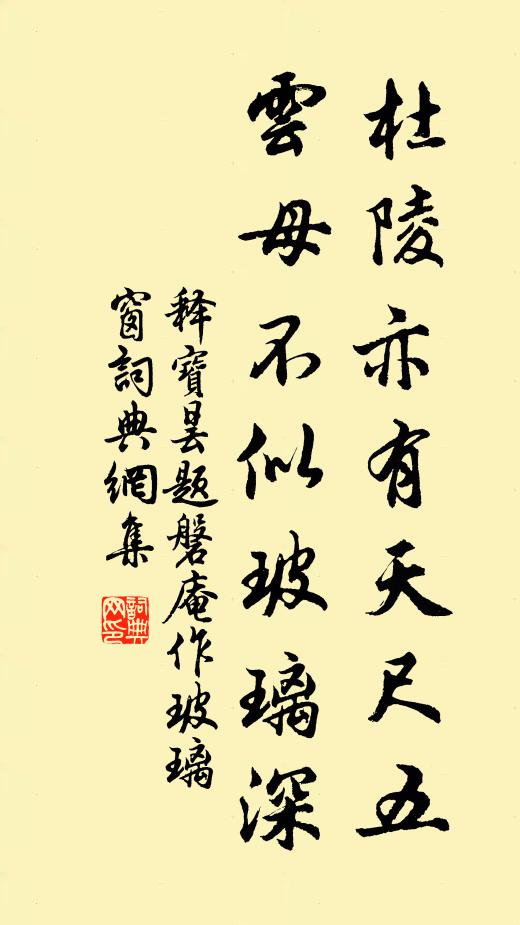 杜陵亦有天尺五
雲母不似玻璃深
释寶昙题磐庵作玻璃
窗詞典網集
詞典网印